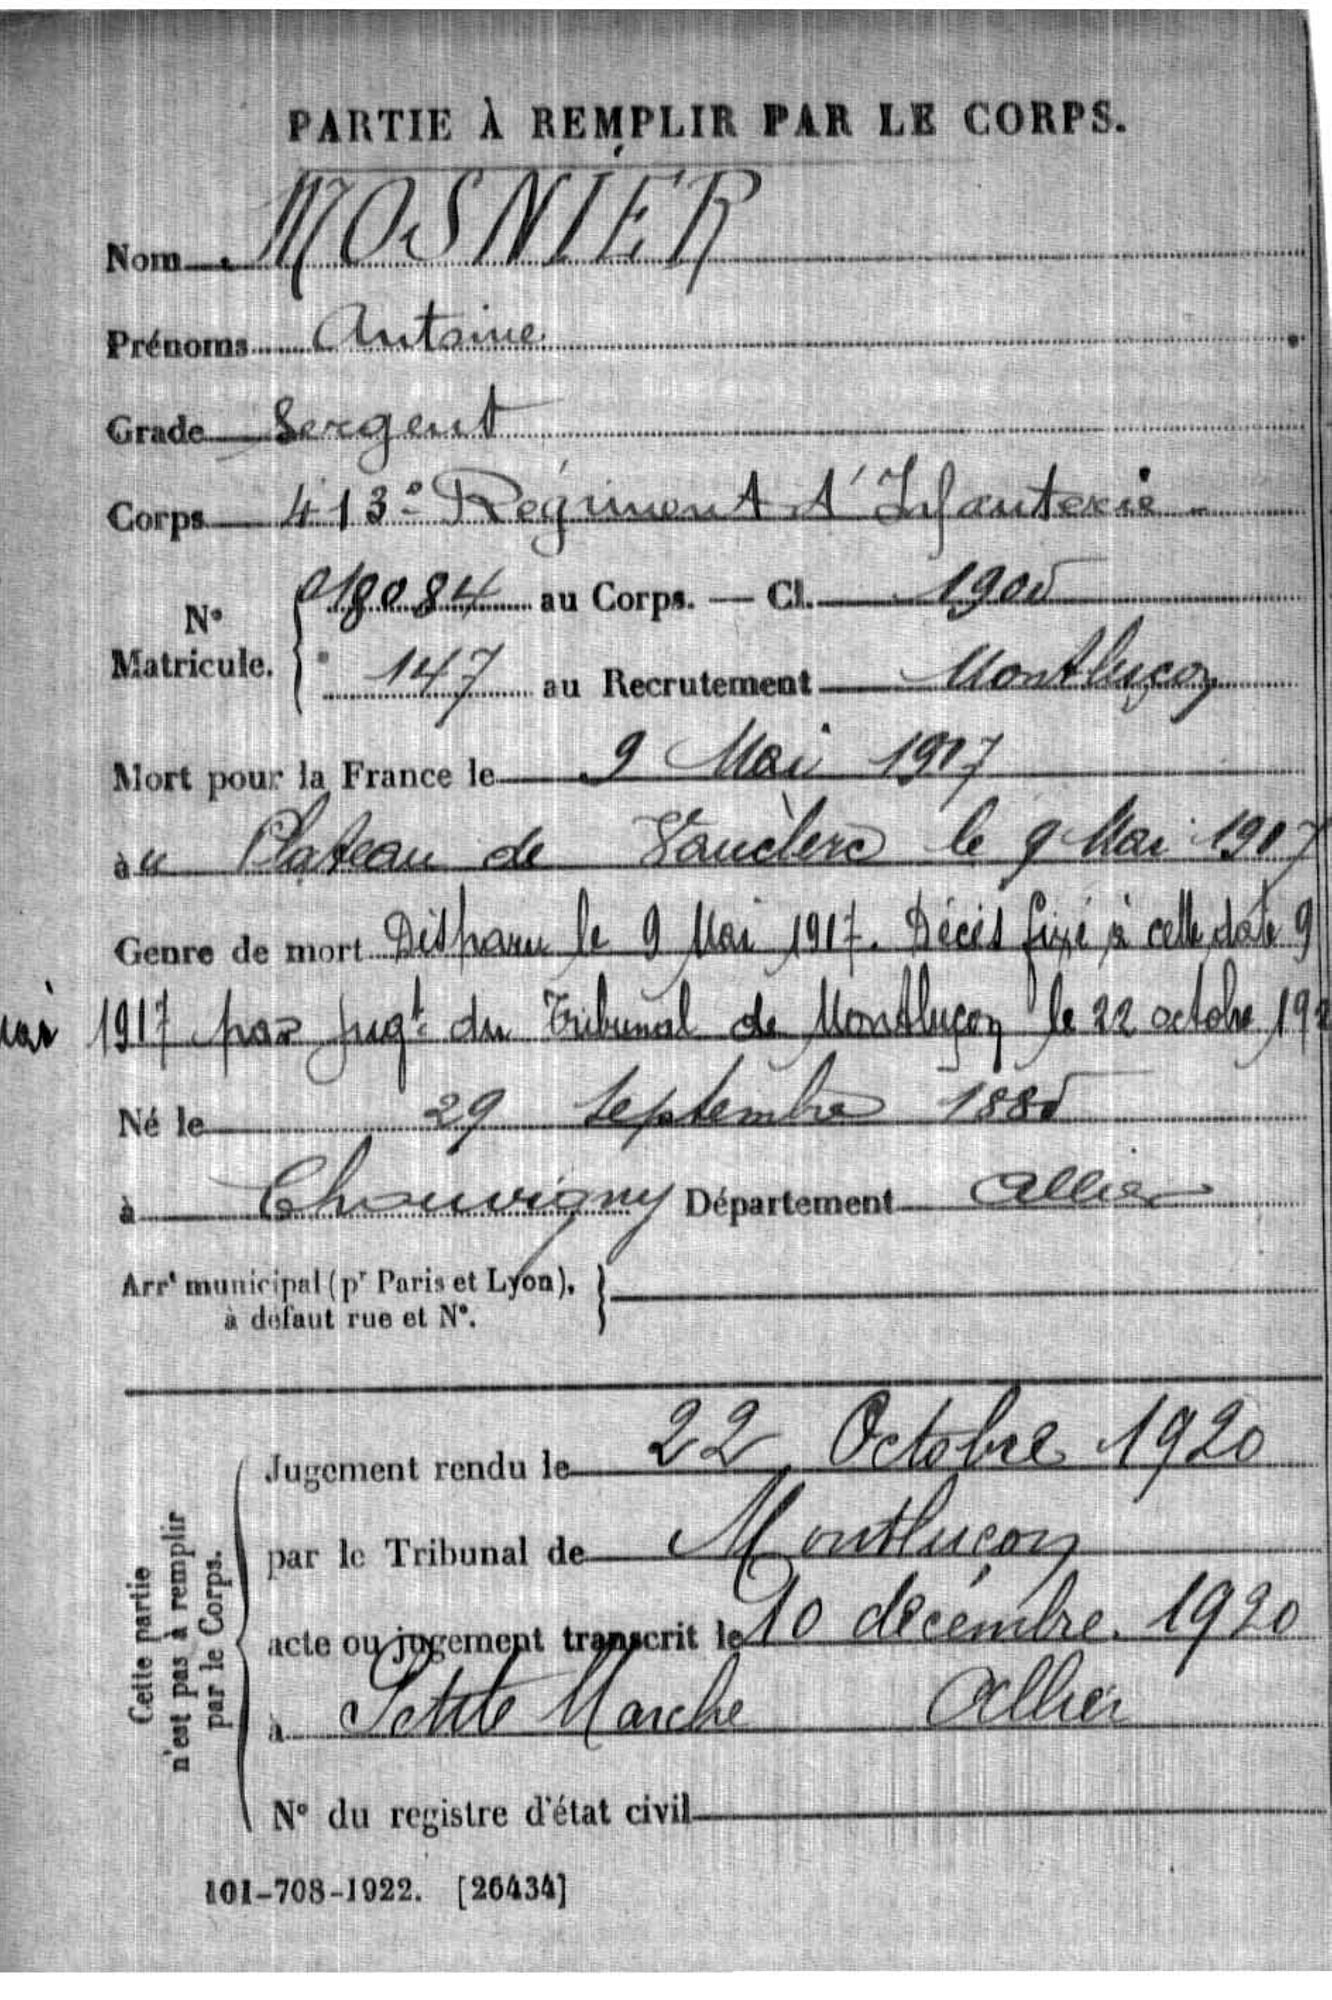 PARTIE À REMPLIR PAR LE CORPS.
Nom MOSNIER
Prénoms Antoine
Grade Sergent
Corps 413e Régiment d'Infanterie
N° Matricule. { 018084 au Corps. — Cl. 1905
147 au Recrutement Montluçon
Mort pour la France le 9 Mai 1917
à u Plateau de Vauclerc le 9 Mai 1917
Genre de mort Disparu le 9 Mai 1917. Décès fixé à cette date 9
mai 1917 par jugt du Tribunal de Montluçon le 22 octobre 192
Né le 29 Septembre 1885
à Chouvigny Département Allier
Arrt municipal (pr Paris et Lyon), }
à défaut rue et N°.
Cette partie
n'est pas à remplir
par le Corps.
Jugement rendu le 22 Octobre 1920
par le Tribunal de Montluçon
acte ou jugement transcrit le 10 décembre 1920
à Petite Marche Allier
N° du registre d'état civil
101-708-1922. [26434]